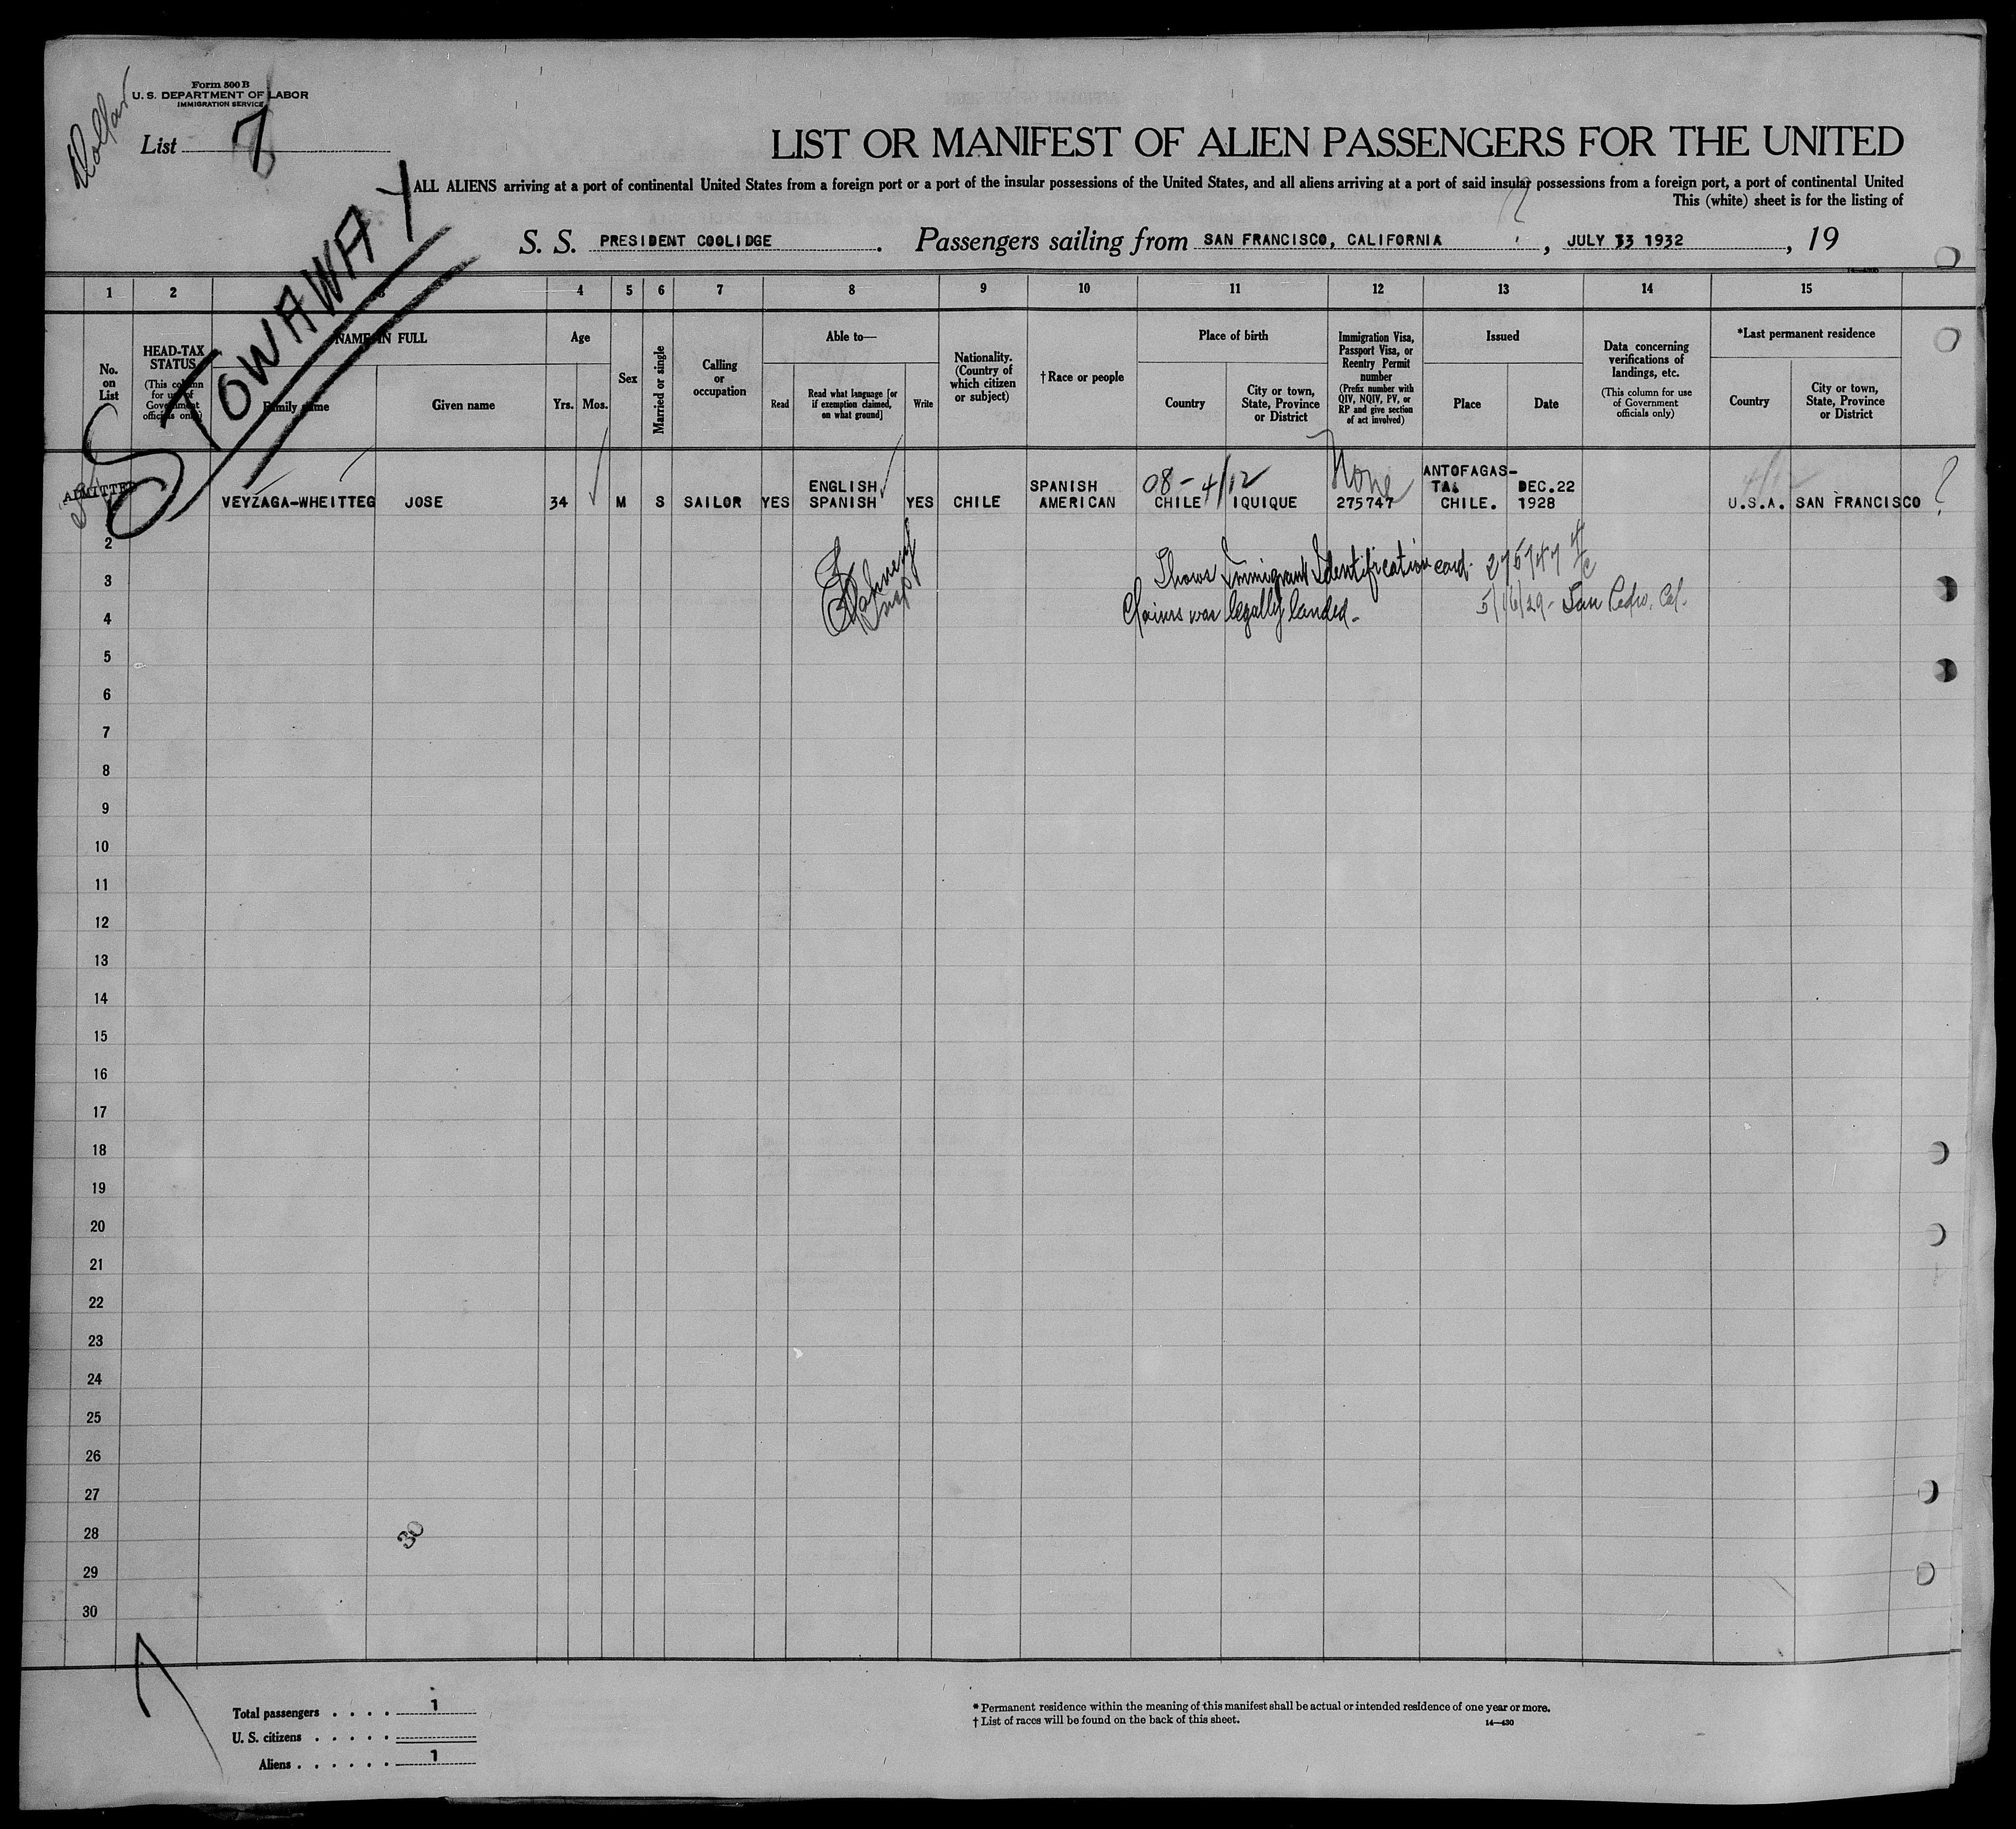 Form 500 B
U. S. DEPARTMENT OF LABOR
IMMIGRATION SERVICE
Dollar
List 7
STOWAWAY
LIST OR MANIFEST OF ALIEN PASSENGERS FOR THE UNITED
ALL ALIENS arriving at a port of continental United States from a foreign port or a port of the insular possessions of the United States, and all aliens arriving at a port of said insular possessions from a foreign port, a port of continental United
This (white) sheet is for the listing of
S. S. PRESIDENT COOLIDGE. Passengers sailing from SAN FRANCISCO, CALIFORNIA, JULY 13 1932, 19
14—430
1 2 3 4 5 6 7 8 9 10 11 12 13 14 15
No. on List
HEAD-TAX STATUS (This column for use of Government officials only)
NAME IN FULL
Family name
Given name
Age
Yrs.
Mos.
Sex
Married or single
Calling or occupation
Able to—
Read
Read what language [or if exemption claimed, on what ground]
Write
Nationality. (Country of which citizen or subject)
†Race or people
Place of birth
Country
City or town, State, Province or District
Immigration Visa, Passport Visa, or Reentry Permit number (Prefix number with QIV, NQIV, PV, or RP and give section of act involved)
Issued
Place
Date
Data concerning verifications of landings, etc. (This column for use of Government officials only)
*Last permanent residence
Country
City or town, State, Province or District
ADMITTED
08-4/12 None ANTOFAGAS- 4/12
ENGLISH SPANISH TA. DEC.22 ?
VEYZAGA-WHEITTEG JOSE 34 M S SAILOR YES SPANISH YES CHILE AMERICAN CHILE IQUIQUE 275747 CHILE. 1928 U.S.A. SAN FRANCISCO
Shows Immigrant Identification card. 275747
Claims was legally landed- 5/16/29- San Pedro, Cal.
2
3
4
5
6
7
8
9
10
11
12
13
14
15
16
17
18
19
20
21
22
23
24
25
26
27
28
30
29
30
Total passengers . . . . 1
U. S. citizens . . . . .
Aliens . . . . . . 1
* Permanent residence within the meaning of this manifest shall be actual or intended residence of one year or more.
† List of races will be found on the back of this sheet.
14—430